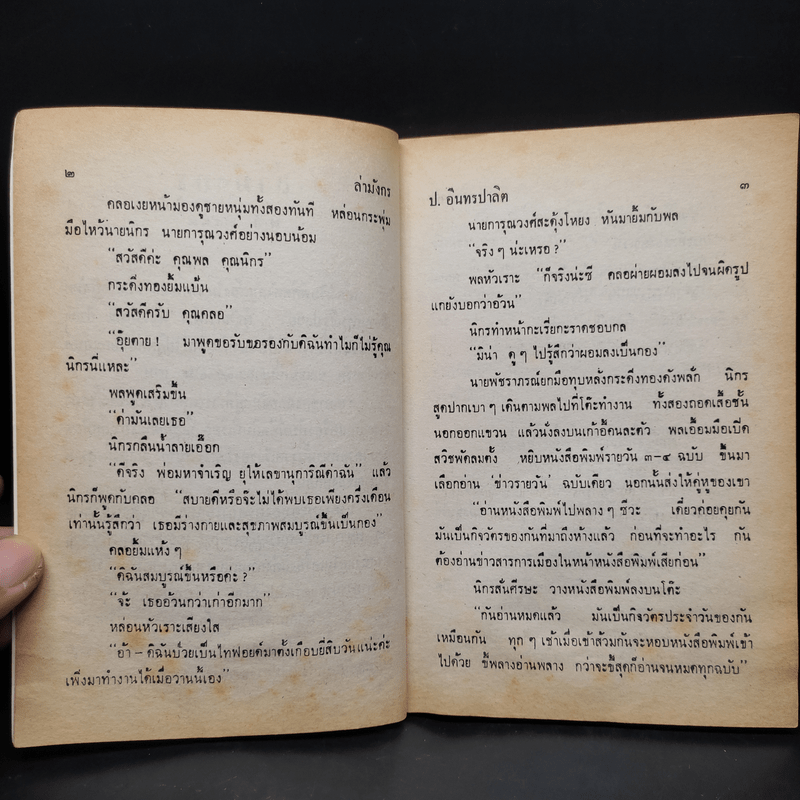 ๒
ล่ามังกร
คลอเงยหน้ามองดูชายหนุ่มทั้งสองทันที หล่อนกระพุ่ม
มือไหว้นายนิกร นายการุณวงศ์อย่างนอบน้อม
“สวัสดีค่ะ คุณพล คุณนิกร”
กระดิ่งทองยิ้มแป้น
“สวัสดีครับ คุณคลอ”
“อุ๊ยตาย! มาพูดขอรับขอรองกับดิฉันทำไมก็ไม่รู้คุณ
นิกรนี่แหละ”
พลพูดเสริมขึ้น
“ด่ามันเลยเธอ”
นิกรกลืนน้ำลายเอื๊อก
“ดีจริง พ่อมหาจำเริญ ยุให้เลขานุการิณีด่าฉัน” แล้ว
นิกรก็พูดกับคลอ “สบายดีหรือจ๊ะไม่ได้พบเธอเพียงครึ่งเดือน
เท่านั้นรู้สึกว่า เธอมีร่างกายและสุขภาพสมบูรณ์ขึ้นเป็นกอง”
คลอยิ้มแห้ง ๆ
“ดิฉันสมบูรณ์ขึ้นหรือค่ะ?”
“จ้ะ เธออ้วนกว่าเก่าอีกมาก”
หล่อนหัวเราะเสียงใส
“อ้า – ดิฉันป่วยเป็นไทฟอยด์มาตั้งเกือบยี่สิบวันแน่ะค่ะ
เพิ่งมาทำงานได้เมื่อวานนี้เอง”
ป. อินทรปาลิต
๓
นายการุณวงศ์สะดุ้งโหยง หันมายิ้มกับพล
“จริง ๆ น่ะเหรอ?”
พลหัวเราะ “ก็จริงน่ะซี คลอผ่ายผอมลงไปจนผิดรูป
แกยังบอกว่าอ้วน”
นิกรทำหน้ากะเรี่ยกะราดชอบกล
“มิน่า ดู ๆ ไปรู้สึกว่าผอมลงเป็นกอง”
นายพัชราภรณ์ยกมือทุบหลังกระดิ่งทองดังพลั่ก นิกร
สูดปากเบา ๆ เดินตามพลไปที่โต๊ะทำงาน ทั้งสองถอดเสื้อชั้น
นอกออกแขวน แล้วนั่งลงบนเก้าอี้คนละตัว พลเอื้อมมือเปิด
สวิชพัดลมตั้ง หยิบหนังสือพิมพ์รายวัน ๓–๔ ฉบับ ขึ้นมา
เลือกอ่าน ‘ข่าวรายวัน’ ฉบับเดียว นอกนั้นส่งให้คู่หูของเขา
“อ่านหนังสือพิมพ์ไปพลาง ๆ ซีวะ เดี๋ยวค่อยคุยกัน
มันเป็นกิจวัตรของกันที่มาถึงห้างแล้ว ก่อนที่จะทำอะไร กัน
ต้องอ่านข่าวสารการเมืองในหน้าหนังสือพิมพ์เสียก่อน”
นิกรสั่นศีรษะ วางหนังสือพิมพ์ลงบนโต๊ะ
“กันอ่านหมดแล้ว มันเป็นกิจวัตรประจำวันของกัน
เหมือนกัน ทุก ๆ เช้าเมื่อเข้าส้วมกันจะหอบหนังสือพิมพ์เข้า
ไปด้วย ขี้พลางอ่านพลาง กว่าจะขี้สุดก็อ่านจนหมดทุกฉบับ”